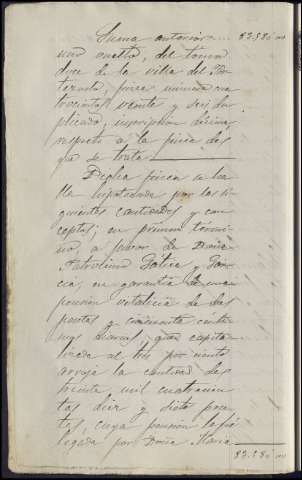 Suma anterior... 83.580 "
uno vuelto, del tomo
doce de la villa del
finca numero cua
trocientos veinte y seis du
plicado, inscripcion décima,
respecto á la finca de
que se trata
Dicha finca se ha
lla hipotecada por las si
guientes cantidades y con
ceptos; en primer térmi
no, a favor de Doña
Patrocinio y Gar
cia, en garantía de una
pension vitalicia de dos
pesetas y cincuenta cénti
mos diarios, que capita
lizada al tres por ciento
arroja la cantidad de
treinta mil cuatrocien
tas diez y siete pese
tas, cuya pension fué
legada por Doña Maria
83.580 "